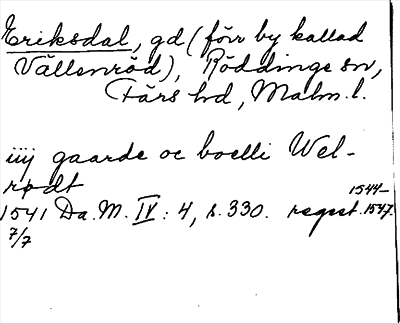 Eriksdal, gd (förr by kallad
Vällenröd), Röddinge sn,
Färs hd, Malm. l.
iiij gaarde oc boelli Wel-
rødt
1541 Da. M. IV : 4, s. 330. regest. 1544-1547.
7/7